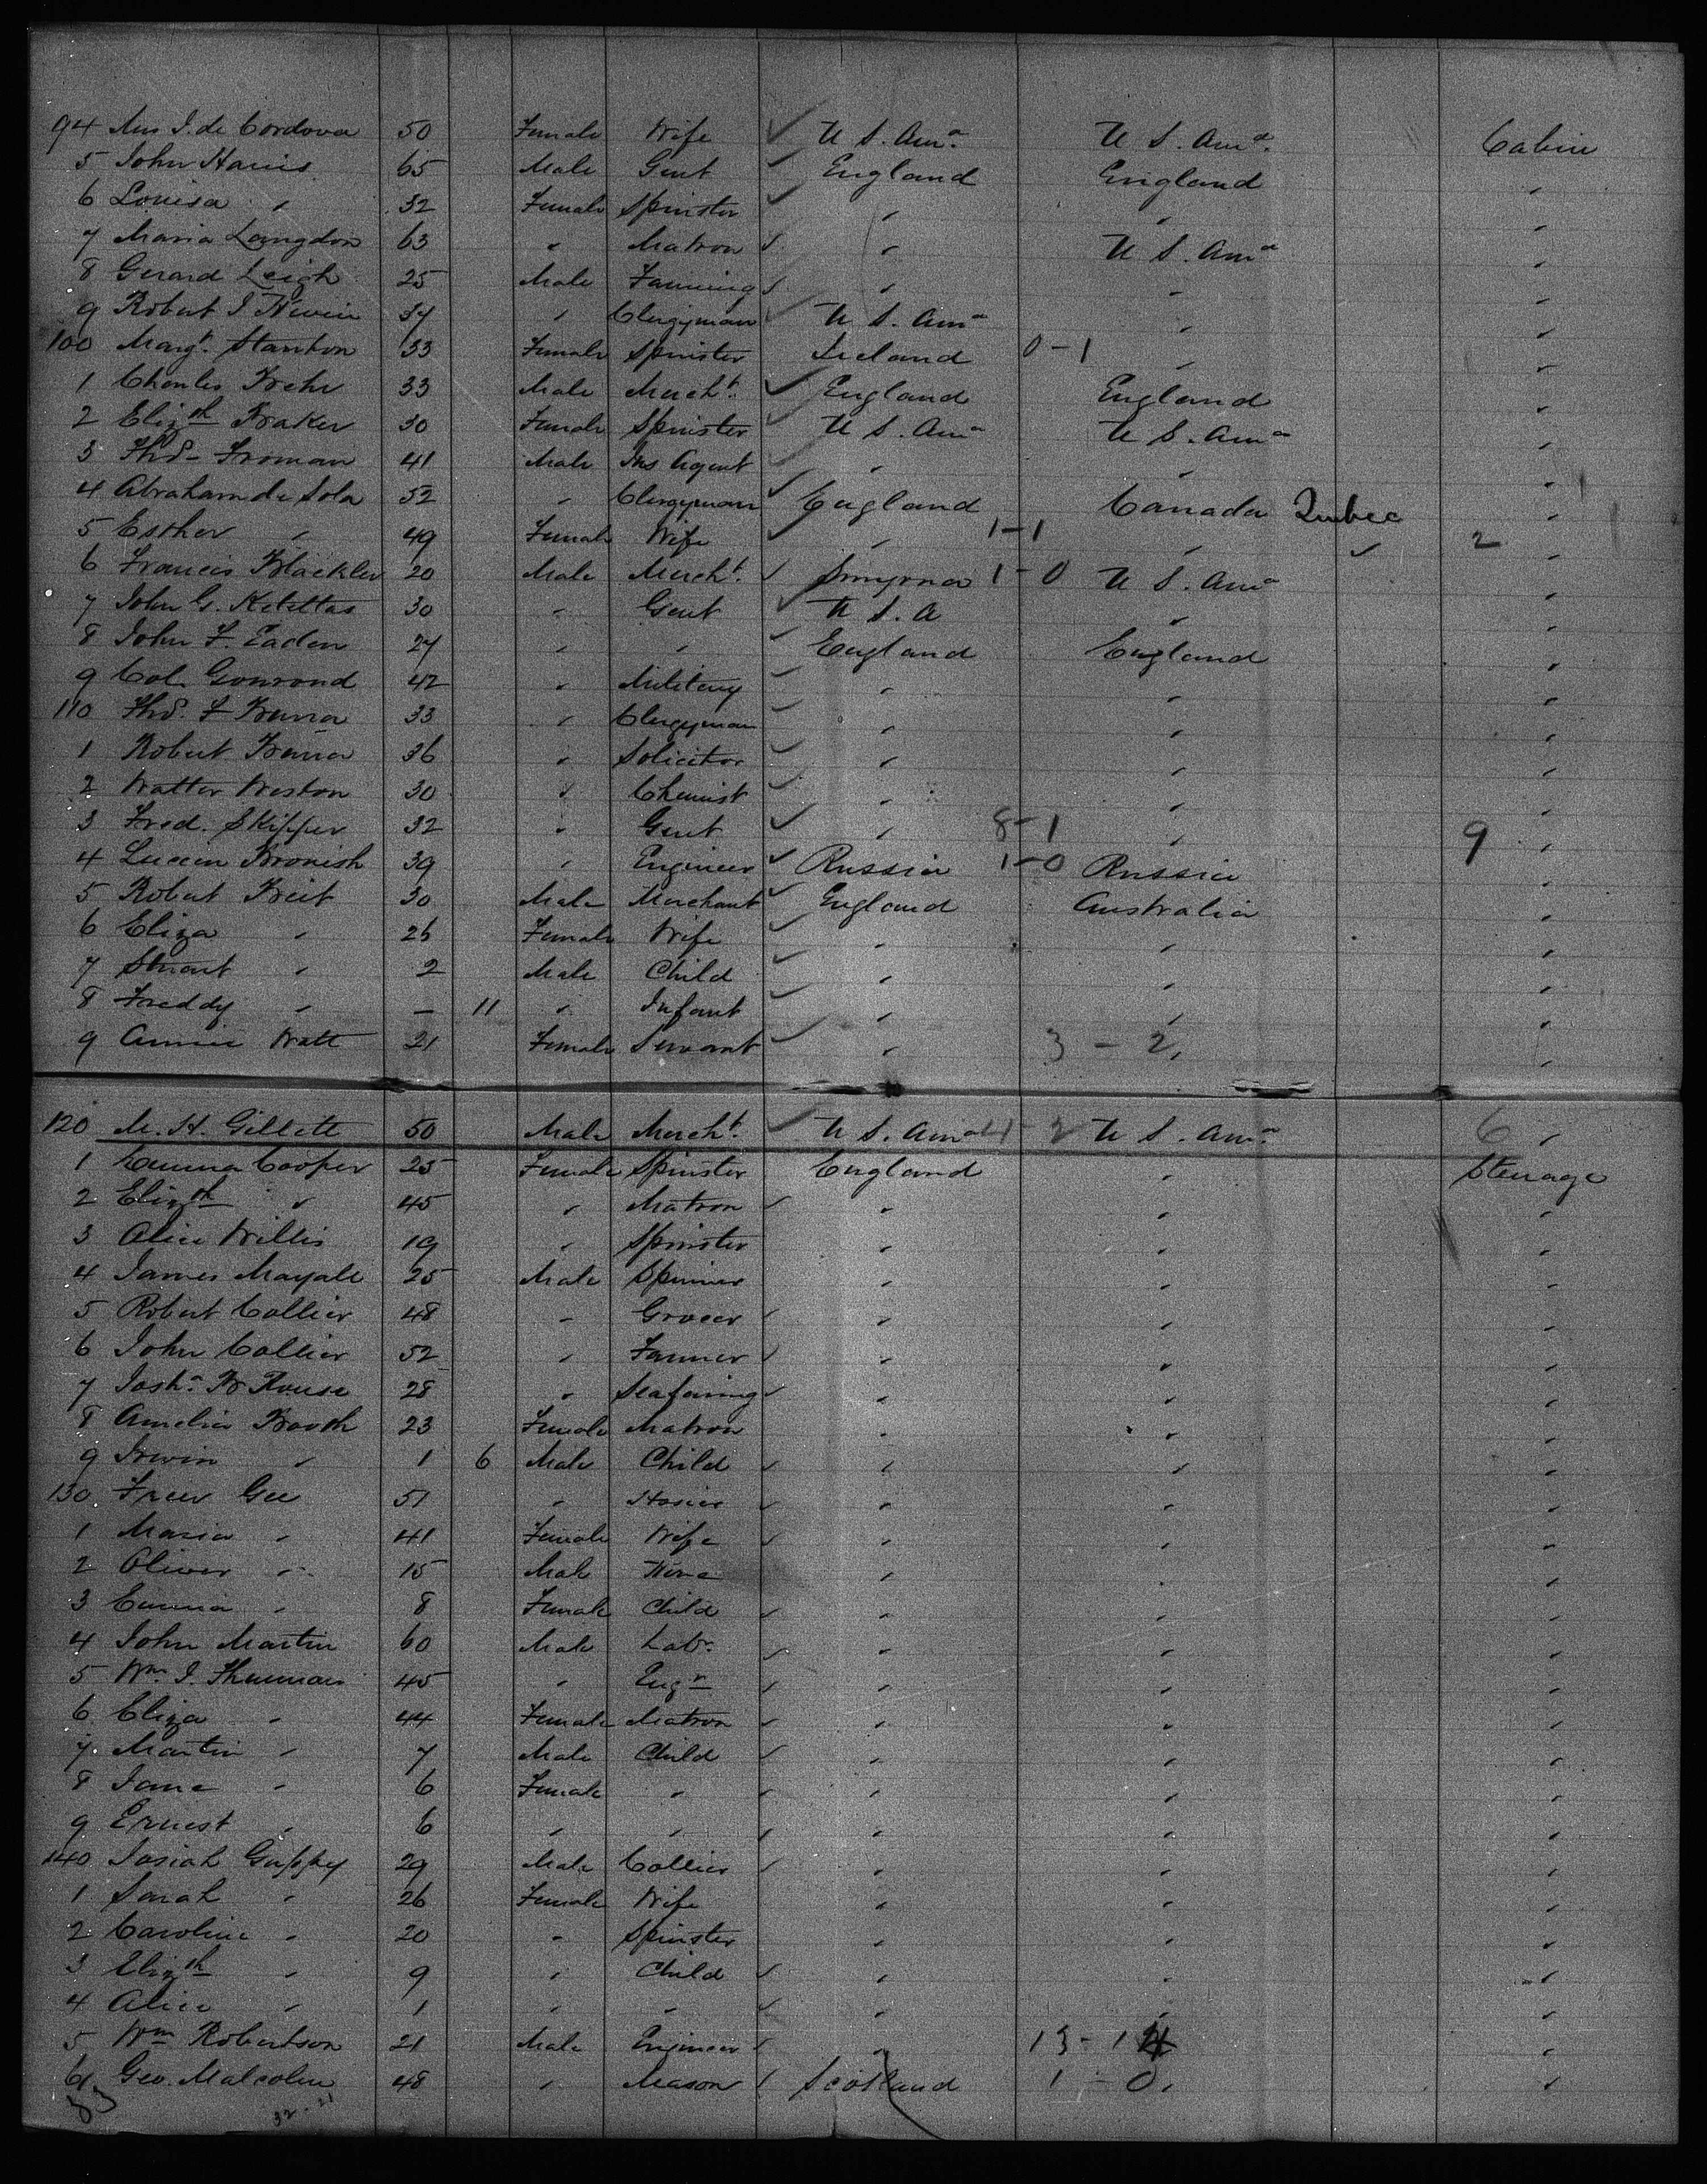 94 Mrs J. de Cordova 50 Female Wife ✓ U S. Ama. U S. Ama. Cabin
5 John Harris 65 Male Gent ✓ England England "
6 Louisa " 32 Female Spinster ✓ " " "
7 Maria Langdon 63 " Matron ✓ " U S. Ama "
8 Gerard Leigh 25 Male Farming ✓ " " "
9 Robert J 37 " Clergyman ✓ U S. Ama " "
100 Margt. Stanton 33 Female Spinster Ireland 0-1 " "
1 Charles 33 Male Mercht. ✓ England England "
2 Elizth 30 Female Spinster ✓ U S. Ama U S. Ama "
3 Thos Froman 41 Male Ins Agent ✓ " " "
4 Abraham de Sola 52 " Clergyman ✓ England Canada Quebec "
5 Esther " 49 Female Wife ✓ " 1-1 " ✓ 2 "
6 Francis Blackler 20 Male Mercht. ✓ Smyrna 1-0 U S. Ama "
7 John G. Keteltas 30 " Gent ✓ U S. A " "
8 John F. Eaden 27 " " ✓ England England "
9 Col. 42 " Military ✓ " " "
110 Thos. F 33 " Clergyman ✓ " " "
1 Robert 36 " Solicitor ✓ " " "
2 Walter Weston 30 " Chemist ✓ " " "
3 Fred. Skipper 32 " Gent ✓ " 8-1 " 9 "
4 Lucien 39 " Engineer ✓ Russia 1-0 Russia "
5 Robert 30 Male Merchant ✓ England Australia "
6 Eliza " 26 Female Wife ✓ " " "
7 Stuart " 2 Male Child ✓ " " "
8 Freddy " – 11 " Infant ✓ " " "
9 Annie Watt 21 Female Servant ✓ " 3-2 " "
120 M. H. Gillett 50 Male Mercht. ✓ U S. Ama 4-2 U S. Ama. 6 "
1 Emma Cooper 25 Female Spinster England " Steerage
2 Elizth " 45 " Matron ✓ " " "
3 Alice Willis 19 " Spinster " " "
4 James Mayall 25 Male Spinner " " "
5 Robert Collier 48 " Grocer ✓ " " "
6 John Collier 52 " Farmer ✓ " " "
7 Josha. W Rouse 28 " Seafaring ✓ " " "
8 Amelia Booth 23 Female Matron " " "
9 Irwin " 1 6 Male Child ✓ " " "
130 Freer Gee 51 " Hosier ✓ " " "
1 Maria " 41 Female Wife ✓ " " "
2 Oliver " 15 Male None " " "
3 Emma " 8 Female Child ✓ " " "
4 John Martin 60 Male Labr. ✓ " " "
5 Wm. J. 45 " Engr ✓ " " "
6 Eliza " 44 Female Matron ✓ " " "
7 Martin " 7 Male Child ✓ " " "
8 Jane " 6 Female " ✓ " " "
9 Ernest " 6 " " ✓ " " "
140 Josiah Guppy 29 Male Collier ✓ " " "
1 Sarah " 26 Female Wife " " "
2 Caroline " 20 " Spinster " " "
3 Elizth " 9 " Child ✓ " " "
4 Alice " 1 " " ✓ " " "
5 Wm Robertson 21 Male Engineer ✓ " 13-14 "
6 Geo. Malcolm 48 " Mason ✓ Scotland 1-0 " "
53 32-21